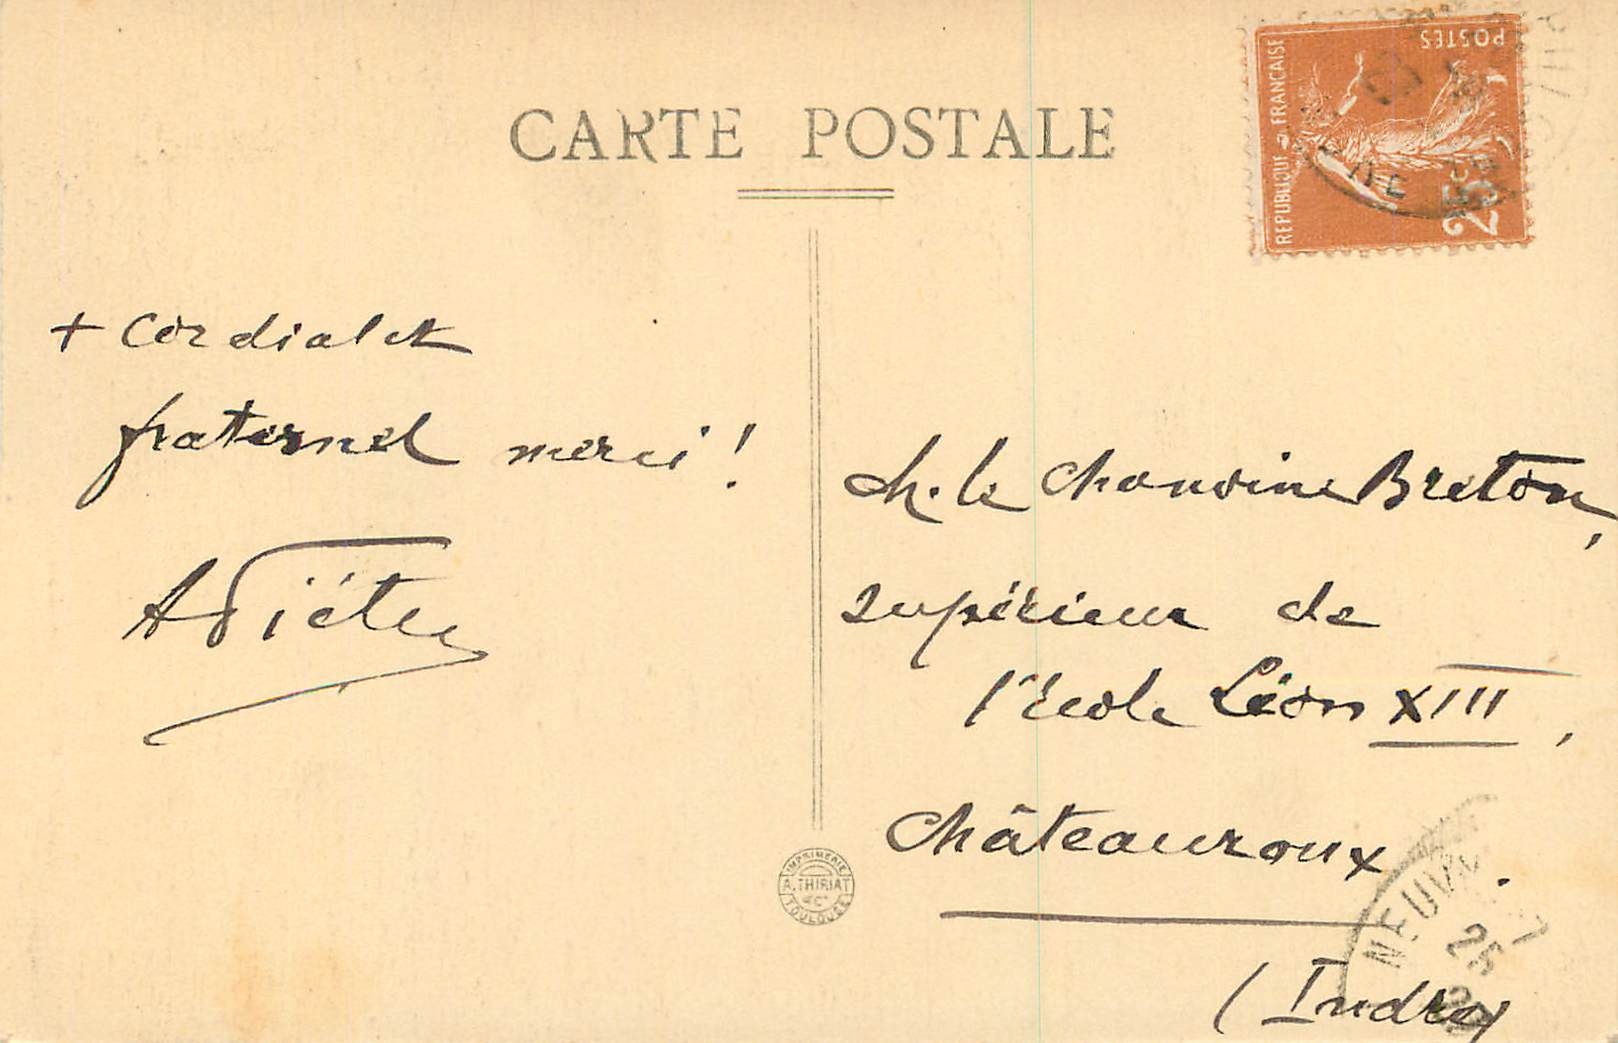 CARTE POSTALE
REPUBLIQUE FRANÇAISE
POSTES
25c
+ Cordial et
fraternel merci !
M. le Chanoine Breton,
Supérieur de
l'École Léon XIII,
Châteauroux.
(Indre)
IMPRIMERIE
A. THIRIAT
& Cie
TOULOUSE
NEUV
25